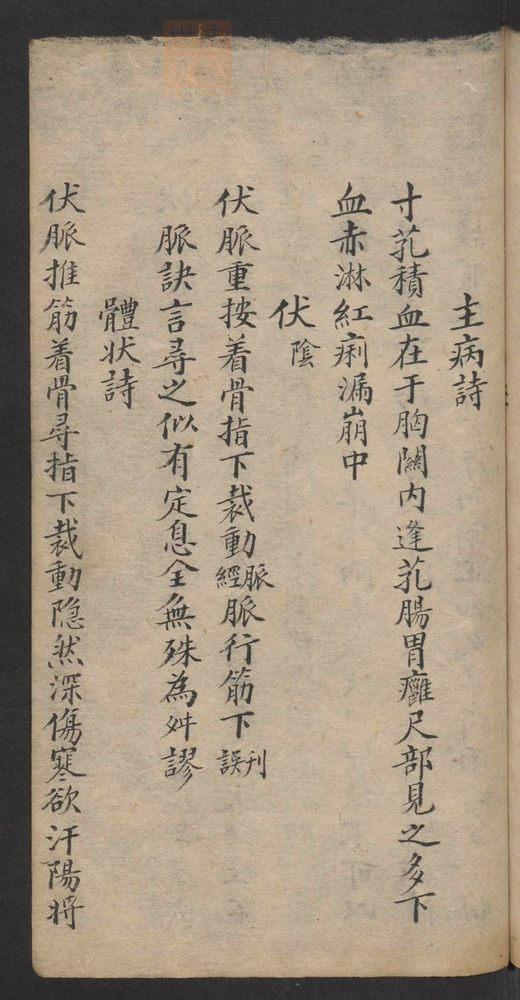 主病詩
寸芤積血在于胸關内逢芤腸胃癰尺部見之多下
血赤淋紅痢漏崩中
伏陰
伏脈重按着骨指下裁動脈經脈行筋下刊誤
脈訣言尋之似有定息全無殊為舛謬
體状詩
伏脈推筋着骨尋指下裁動隐然深傷寒欲汗陽將